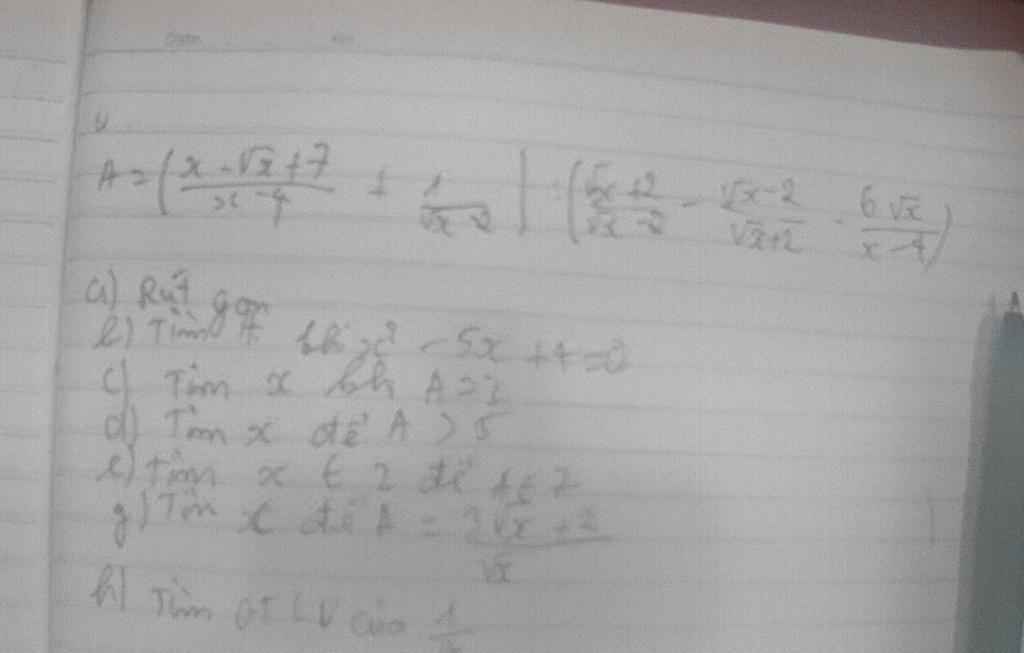 A = (x - √x + 7 / x - 4 + 1 / √x - 2) : (√x + 2 / √x - 2 - √x - 2 / √x + 2 - 6√x / x - 4)
a) Rút gọn
b) Tìm A khi x² - 5x + 4 = 0
c) Tìm x khi A = 3
d) Tìm x để A > 5
e) tìm x ∈ Z để A ∈ Z
g) Tìm x để A = 3√x + 2 / √x
h) Tìm GTLN của 1